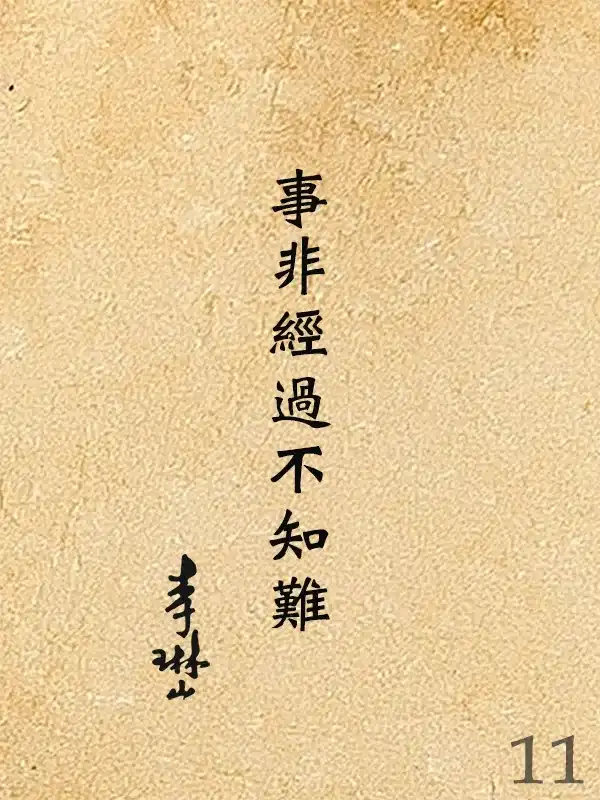 事非經過不知難
李琳山
11